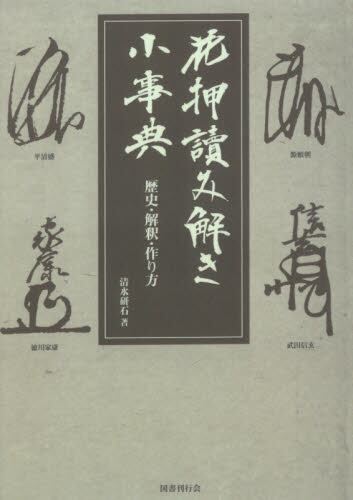 花押讀み解き
小事典
歴史・解釈・作り方
清水研石 著
源頼朝
平清盛
武田信玄
徳川家康
国書刊行会